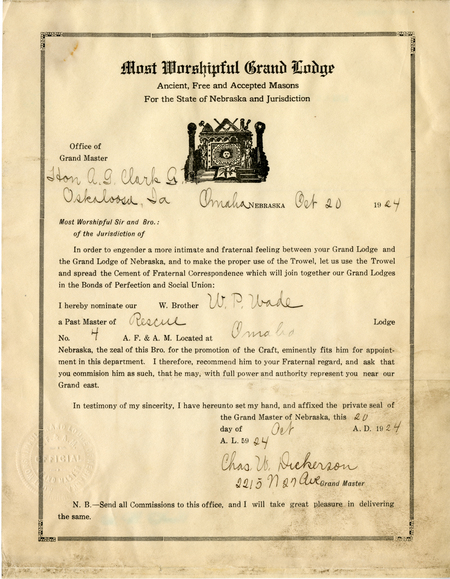 Most Worshipful Grand Lodge
Ancient, Free and Accepted Masons
For the State of Nebraska and Jurisdiction
Office of
Grand Master
Hon A. G. Clark G.
Oskaloosa, Ia
Omaha NEBRASKA Oct 20 1924
Most Worshipful Sir and Bro.:
of the Jurisdiction of
In order to engender a more intimate and fraternal feeling between your Grand Lodge and
the Grand Lodge of Nebraska, and to make the proper use of the Trowel, let us use the Trowel
and spread the Cement of Fraternal Correspondence which will join together our Grand Lodges
in the Bonds of Perfection and Social Union:
I hereby nominate our W. Brother W. P. Wade
a Past Master of Rescue Lodge
No. 4 A. F. & A. M. Located at Omaha
Nebraska, the zeal of this Bro. for the promotion of the Craft, eminently fits him for appoint-
ment in this department. I therefore, recommend him to your Fraternal regard, and ask that
you commision him as such, that he may, with full power and authority represent you near our
Grand east.
In testimony of my sincerity, I have hereunto set my hand, and affixed the private seal of
the Grand Master of Nebraska, this 20
day of Oct A. D. 1924
A. L. 5924
Chas. W. Dickerson
2215 N 27 Ave Grand Master
OFFICIAL
N. B.—Send all Commissions to this office, and I will take great pleasure in delivering
the same.